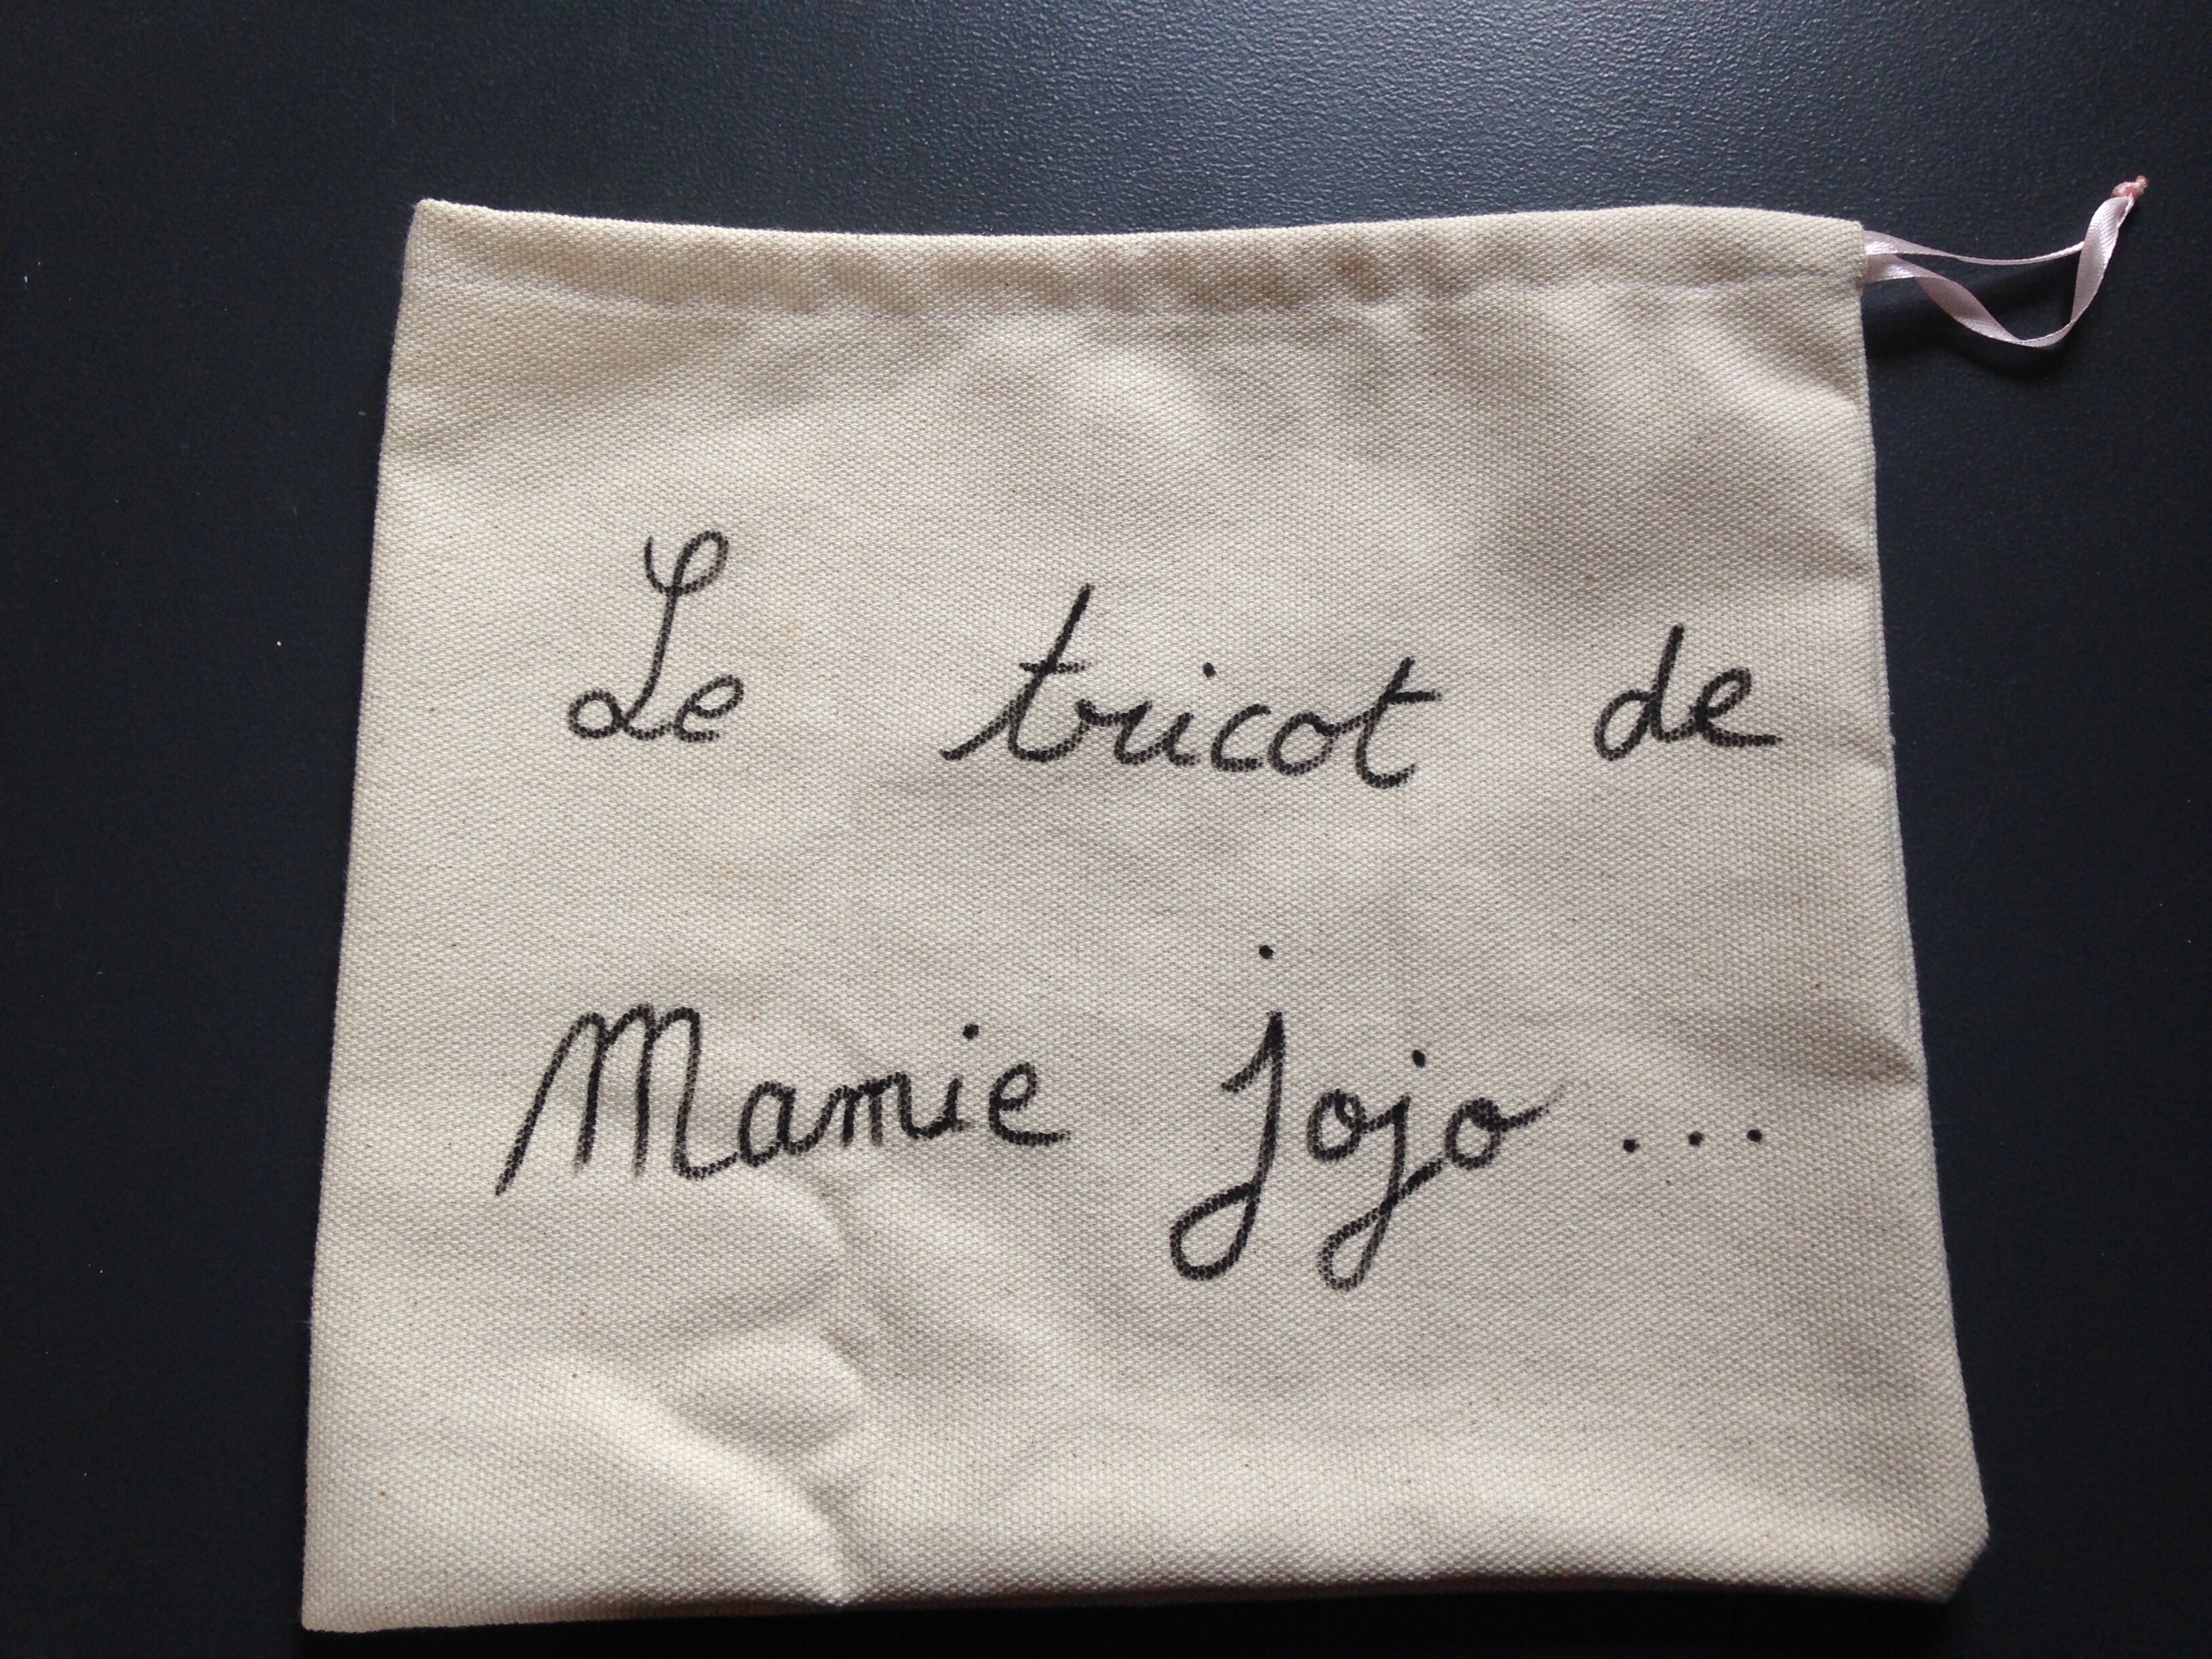 Le tricot de
Mamie Jojo ...